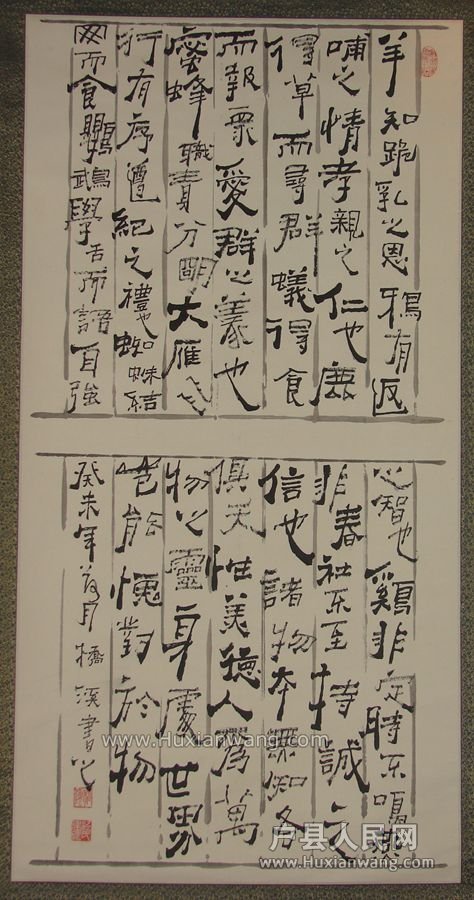 羊知跪乳之恩鴉有返
哺之情孝親之仁也鹿
得草而尋群蟻得食
而報眾愛群之義也
蜜蜂職責分明大雁飛
行有序遵紀之禮也蜘蛛結
网而食鸚鵡學舌而語自強
之智也鷄非定時不鳴燕
非春社不至持誠之
信也諸物本無知各
俱天性美德人為萬
物之靈身處世界
豈能愧對於物
癸未年月橋溪書之
www.Huxianwang.com
户县人民网
www.Huxianwang.com